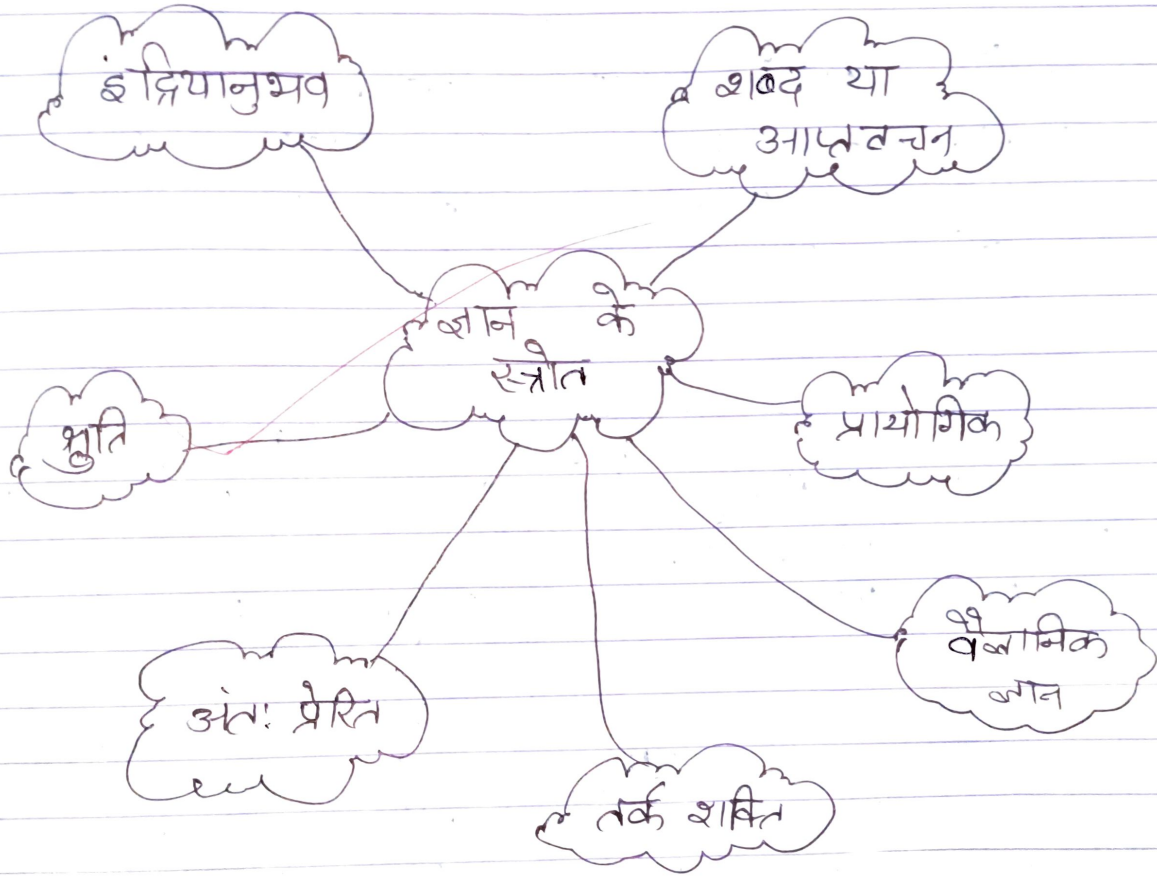 इंद्रियानुभव
शब्द या
आप्तवचन
ज्ञान के
स्त्रोत
श्रुति
प्रायोगिक
वैज्ञानिक
ज्ञान
अंतः प्रेरित
तर्क शक्ति